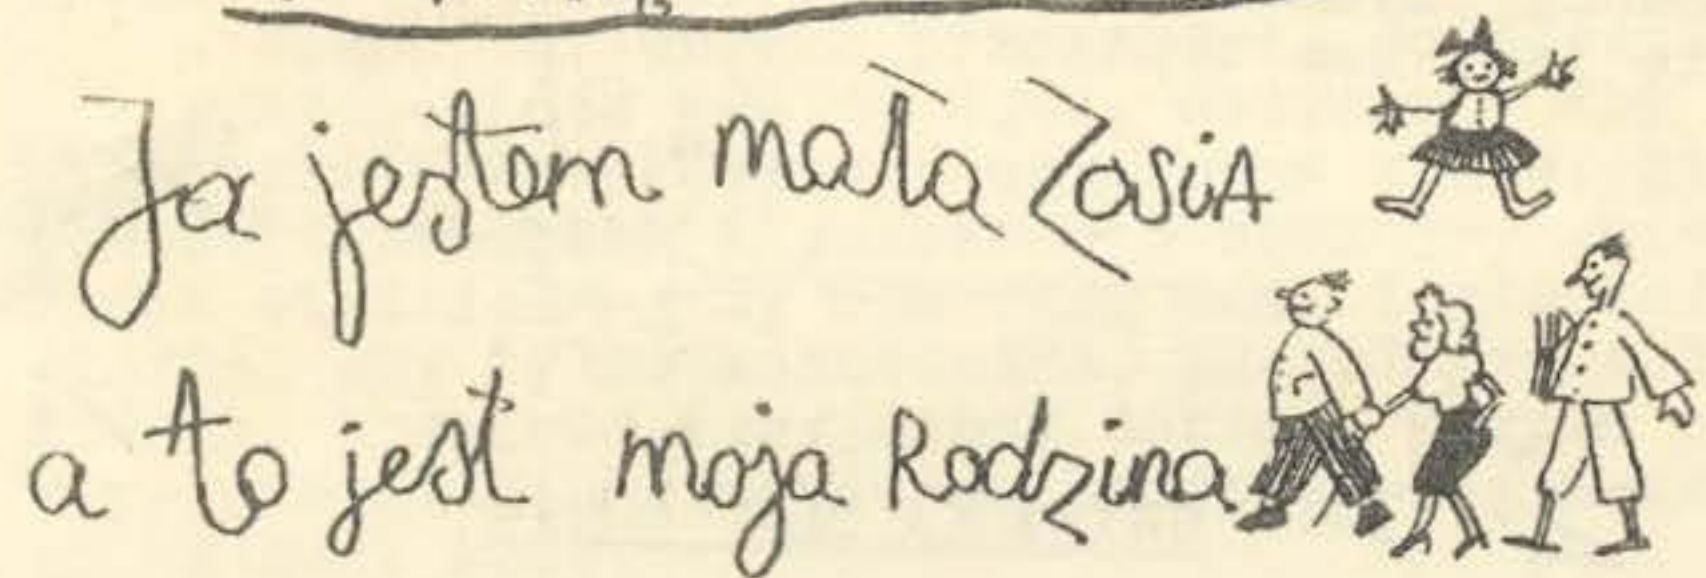 Ja jestem mała Zosia
a to jest moja Rodzina